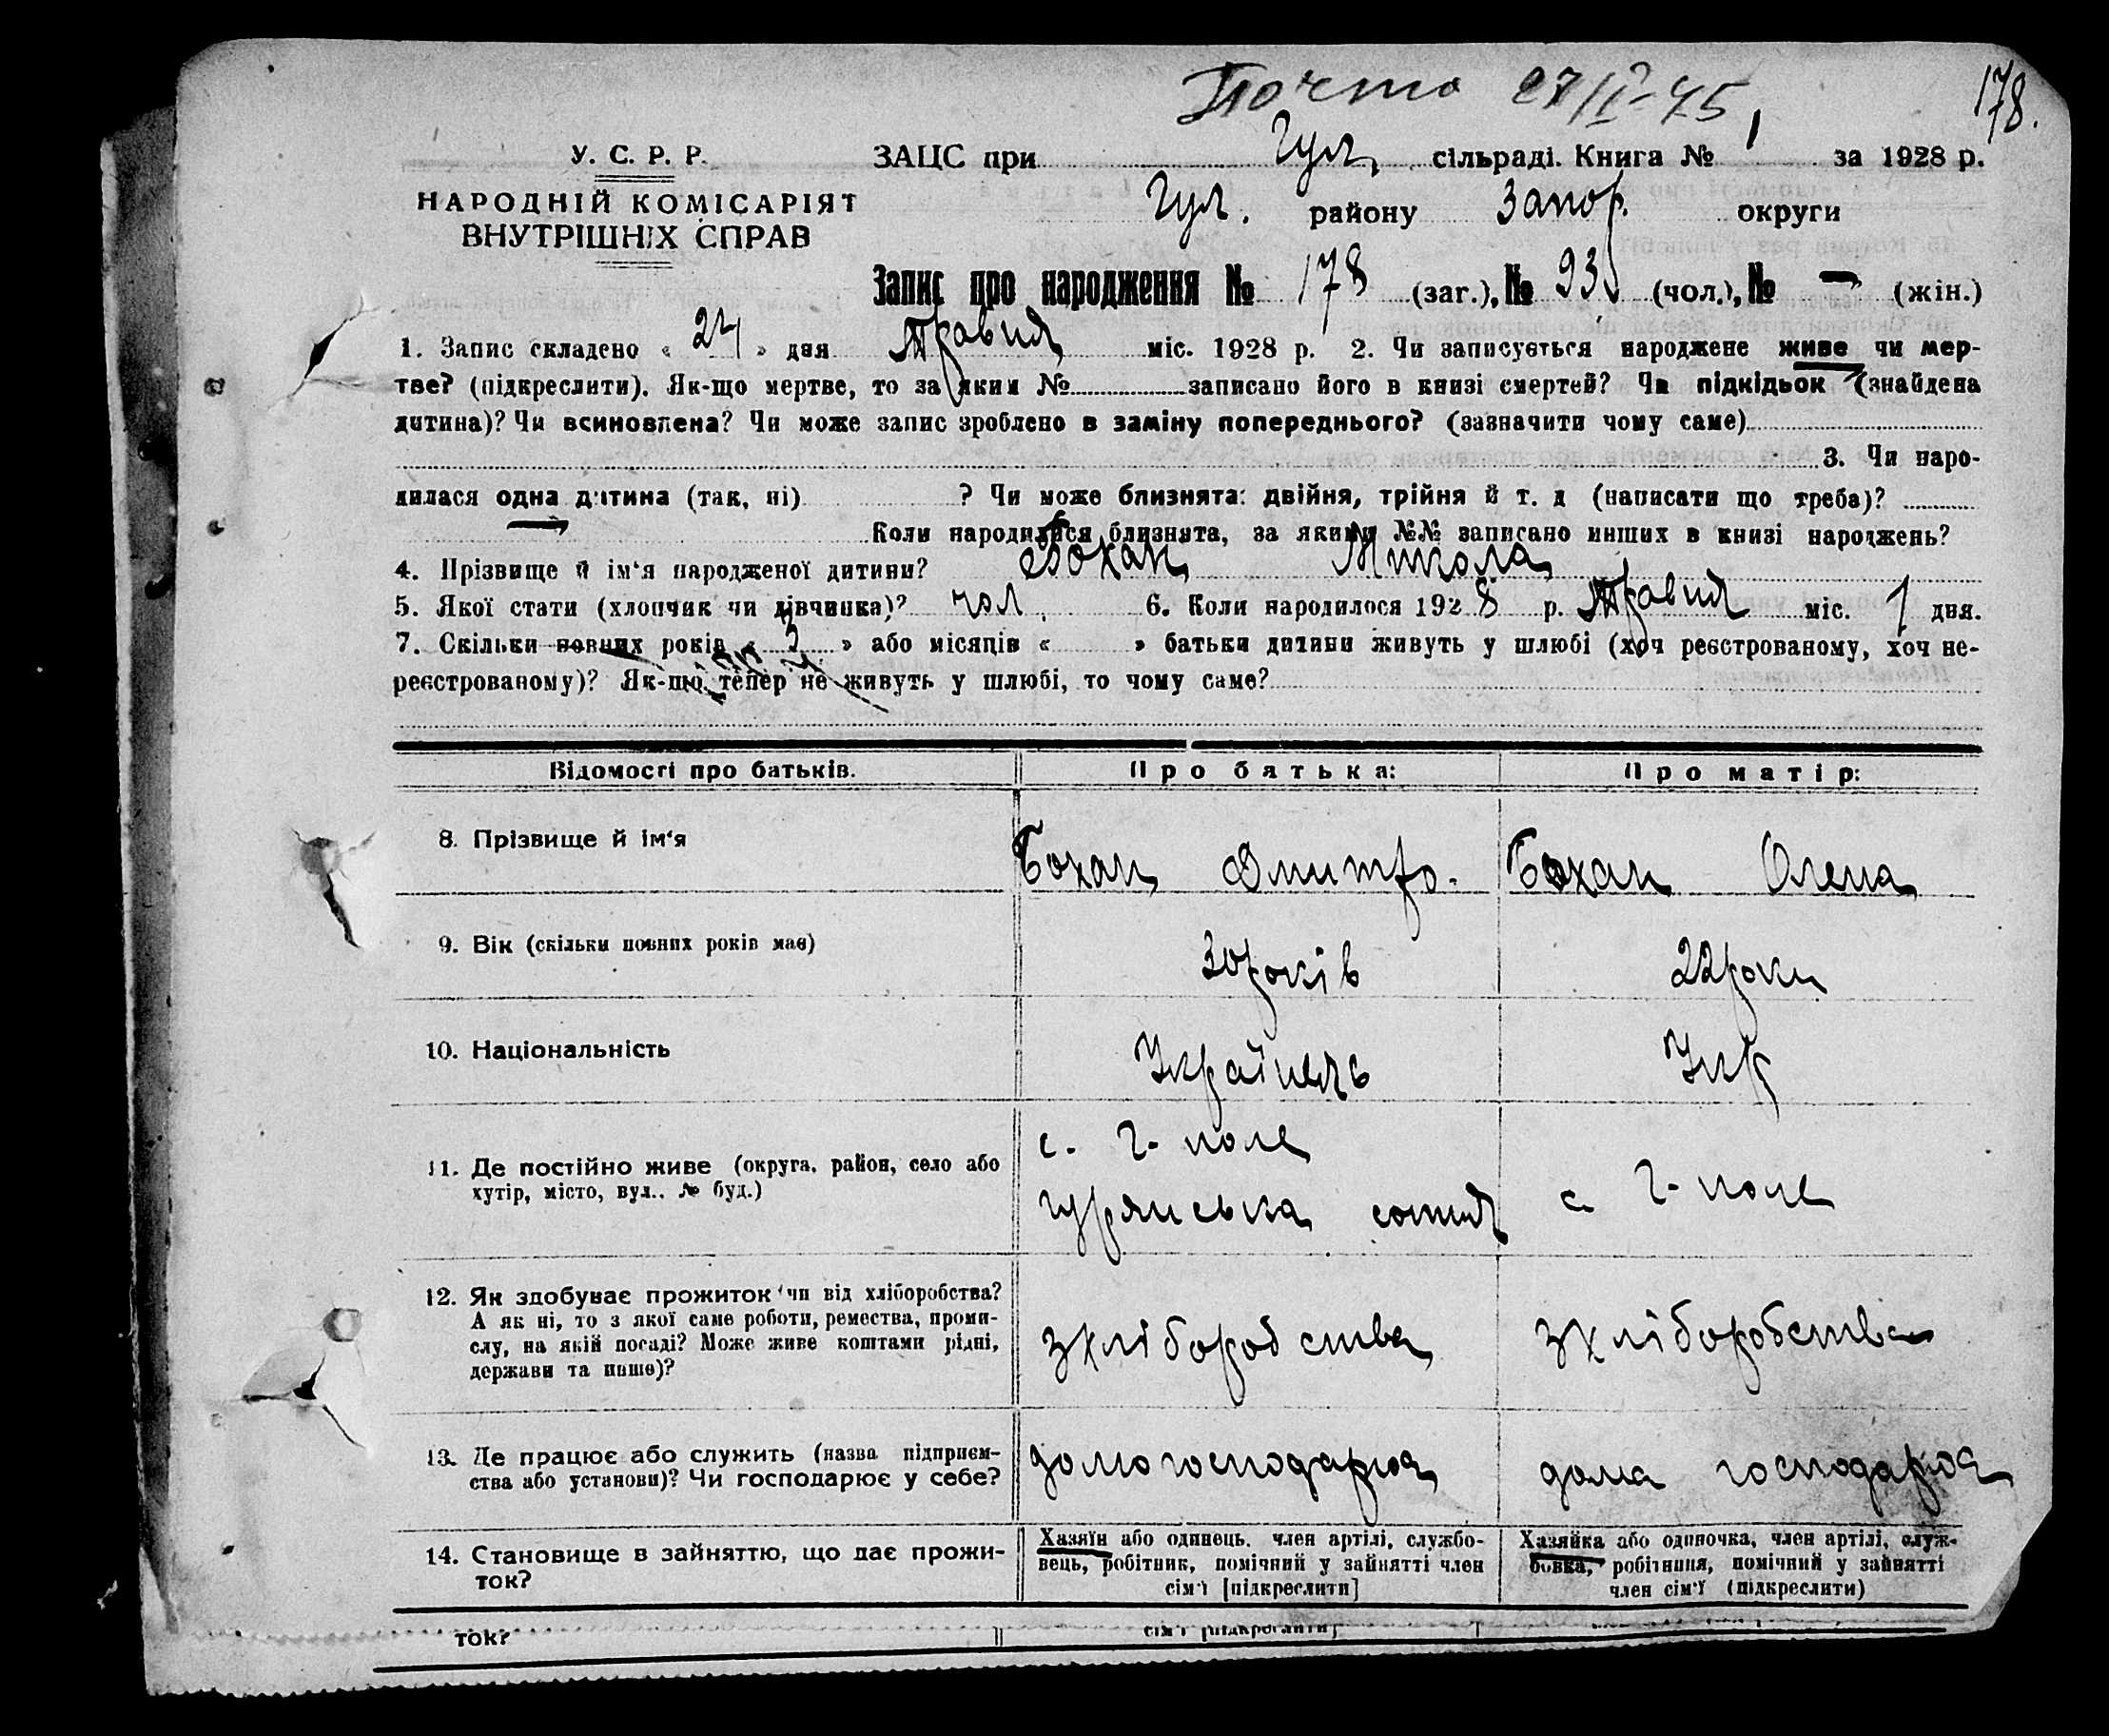 Почто 27/II-45
178.
У. С. Р. Р.
НАРОДНІЙ КОМІСАРІЯТ
ВНУТРІШНІХ СПРАВ
ЗАЦС при Гул, сільраді. Книга № 1 за 1928 р.
Гул. району Запор. округи
Запис про народження № 178 (заг.), № 93 (чол.), № — (жін.)
1. Запис складено « 24 » дня Травня міс. 1928 р. 2. Чи записується народжене живе чи мер-
тве? (підкреслити). Як-що мертве, то за яким № записано його в книзі смертей? Чи підкідьок (знайдена
дитина)? Чи всиновлена? Чи може запис зроблено в заміну попереднього? (зазначити чому саме)
3. Чи наро-
дилася одна дитина (так, ні) ? Чи може близнята: двійня, трійня й т. д (написати що треба)?
Коли народилися близнята, за якими №№ записано инших в книзі народжень?
4. Прізвище й ім'я народженої дитини? Бохан Микола
5. Якої стати (хлопчик чи дівчинка)? чол. 6. Коли народилося 1928 р. Травня міс. 1 дня.
7. Скільки повних років « 3 » або місяців « » батьки дитини живуть у шлюбі (хоч реєстрованому, хоч не-
реєстрованому)? Як-що тепер не живуть у шлюбі, то чому саме?
Відомості про батьків. Про батька: Про матір:
8. Прізвище й ім'я Бохан Дмитро. Бохан Олена
9. Вік (скільки повних років має) 30 років 22 роки
10. Національність Українець Укр
11. Де постійно живе (округа, район, село або
хутір, місто, вул.. № буд.)
с. Г-поле
гурянська сотня
с Г-поле
12. Як здобуває прожиток чи від хліборобства?
А як ні, то з якої саме роботи, ремества, проми-
слу, на якій посаді? Може живе коштами рідні,
держави та инше)?
з хліборобства з хліборобства
13. Де працює або служить (назва підприєм-
ства або установи)? Чи господарює у себе?
домо господарює дома господарює
14. Становище в зайняттю, що дає прожи-
ток?
Хазяїн або одинець, член артілі, службо-
вець, робітник, помічний у зайнятті член
сім'ї [підкреслити]
Хазяйка або одиночка, член артілі, служ-
бовка, робітниця, помічний у зайнятті
член сім'ї (підкреслити)
ток? сім'ї [підкреслити]